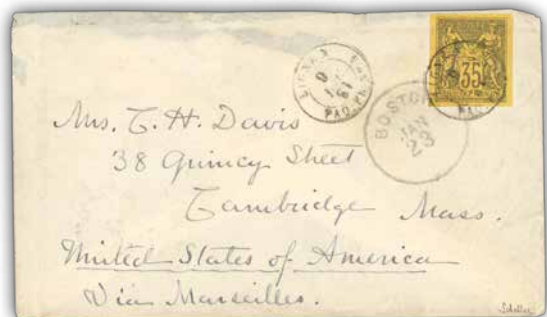 LIGNE N
PAQ. FR.
81
35
BOSTON
JAN
23
Mrs. T. H. Davis
38 Quincy Street
Cambridge Mass.
United States of America
Via Marseilles.